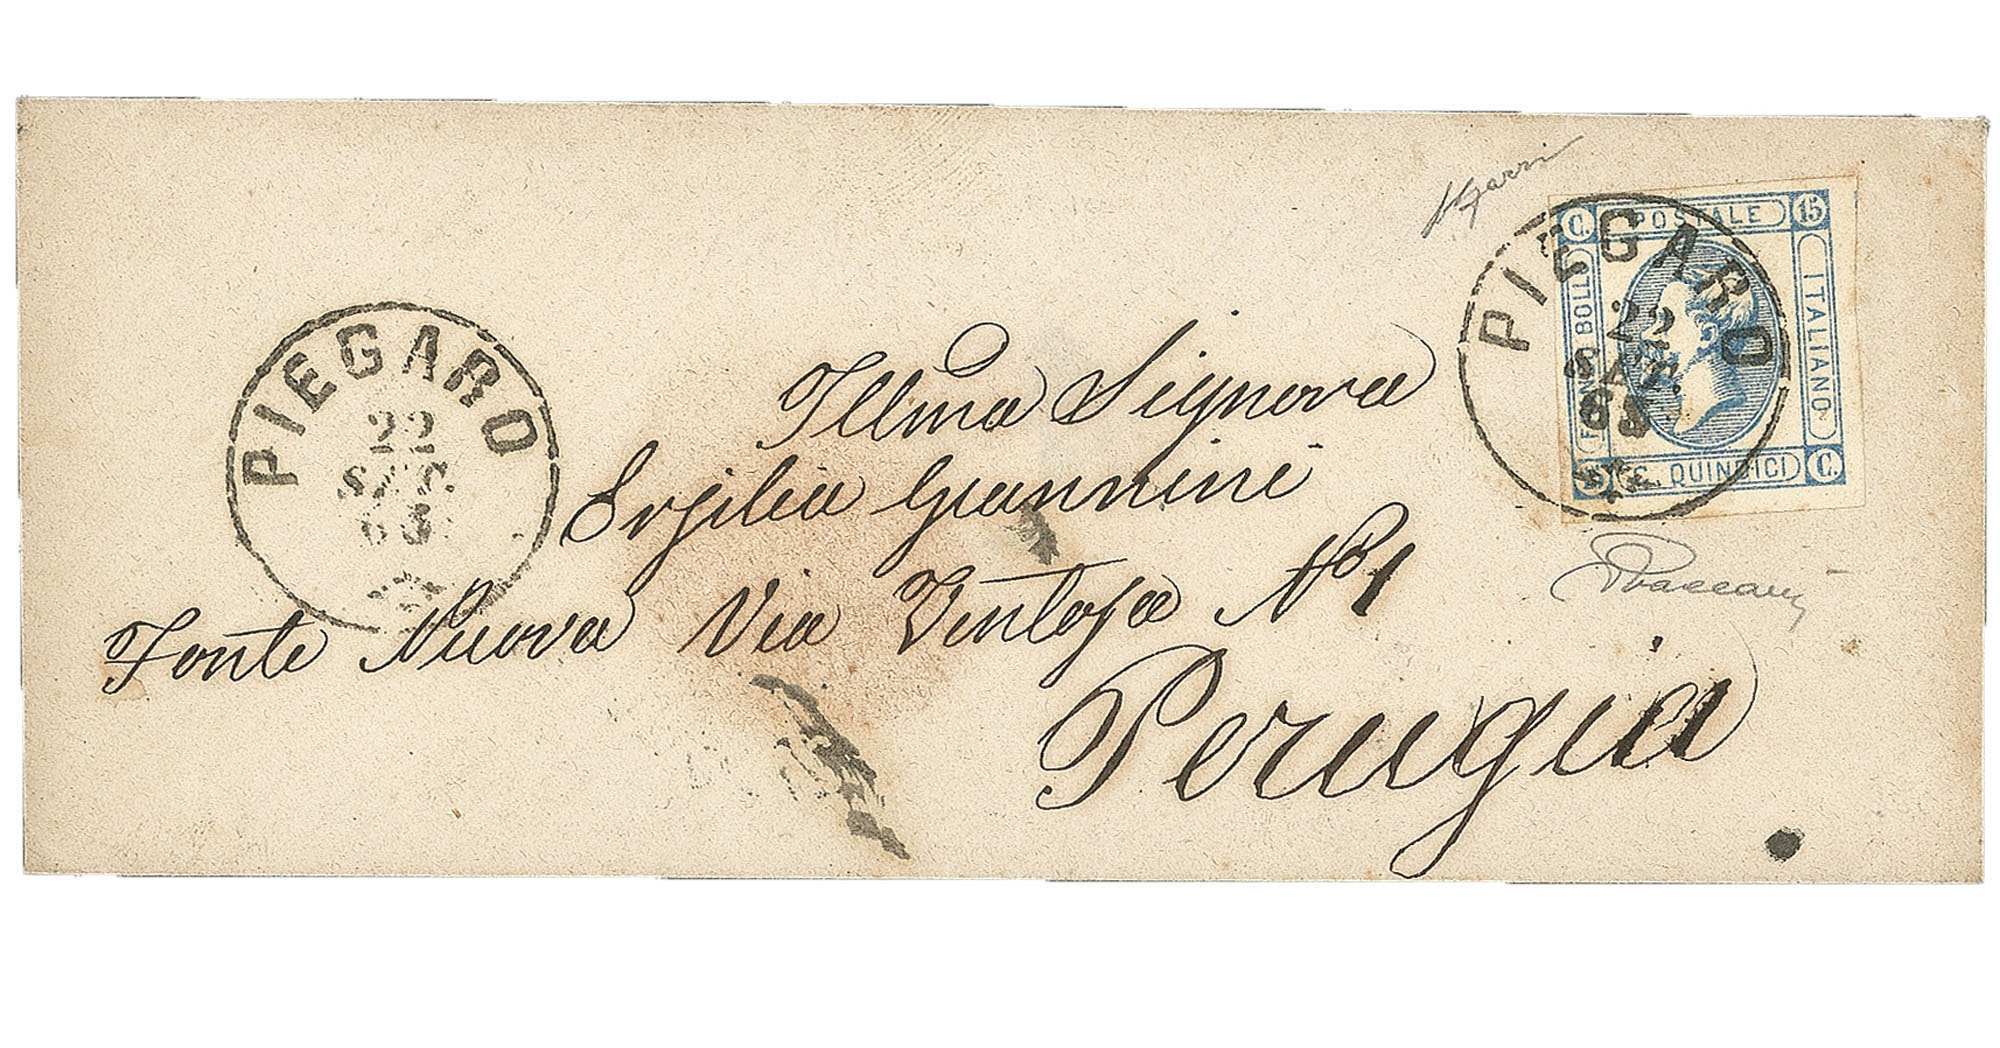 C. POSTALE 15
FRANCO BOLLO
ITALIANO
C. QUINDICI C.
PIEGARO
22
SET.
63
PIEGARO
22
SET.
63
Illma Signora
Ersilia Giannini
Fonte Nuova Via Ventosa No 1
Perugia